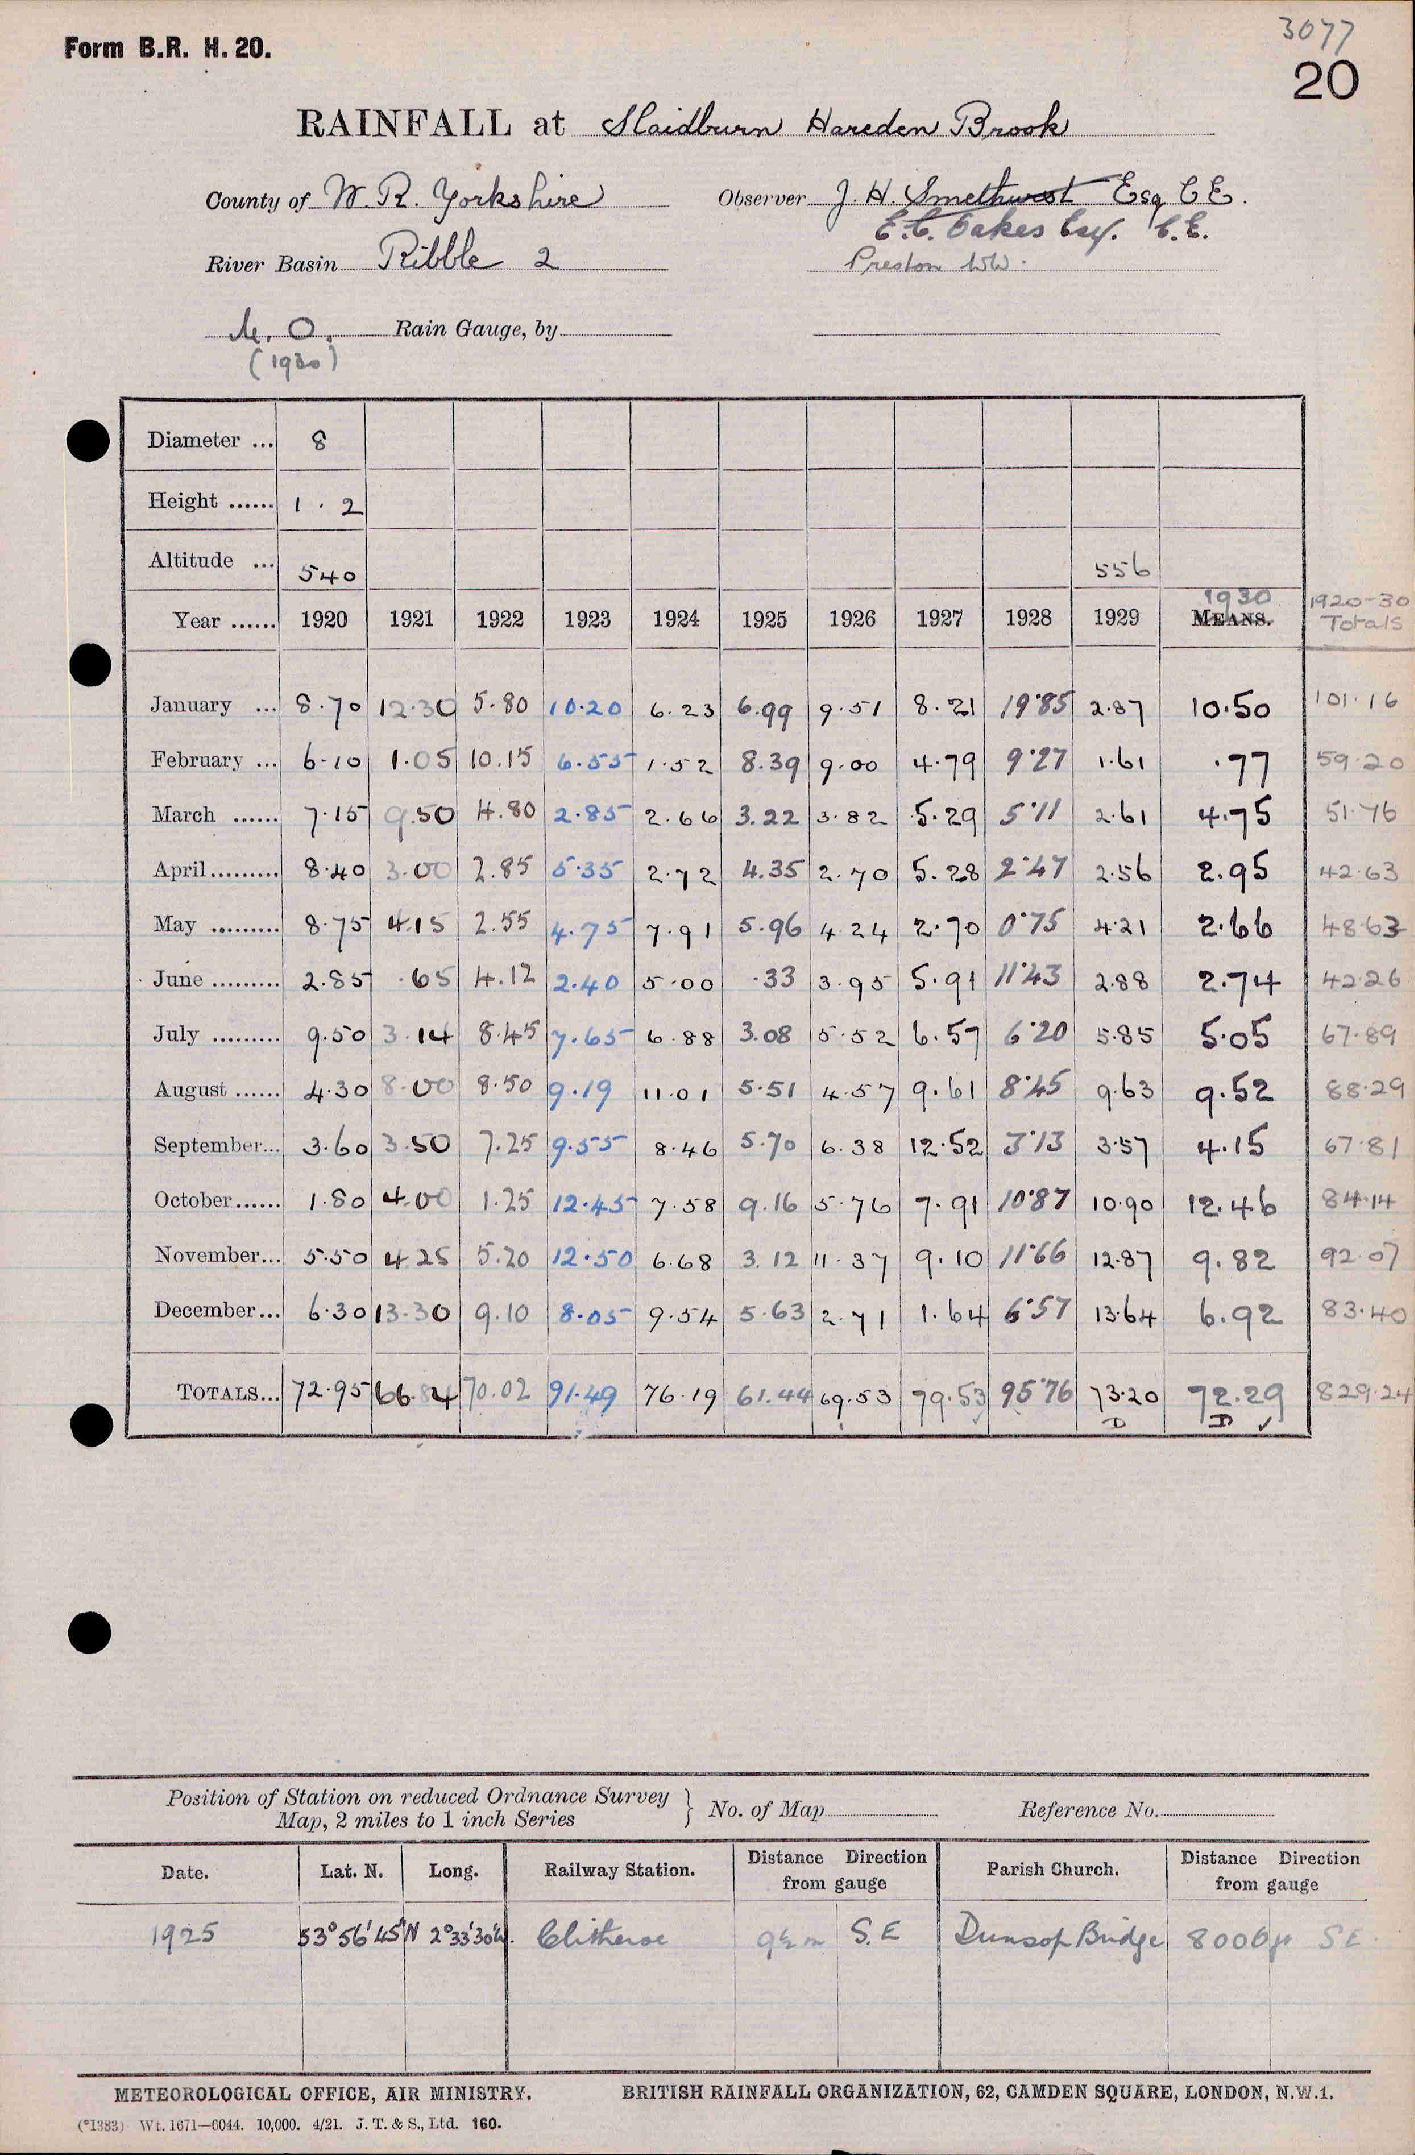 3077
Form B.R. H. 20.
20
RAINFALL at Slaidburn Hareden Brook
County of W. R. Yorkshire Observer J. H. Smethurst Esq C E.
E. C. Oakes Esq. C. E.
River Basin Ribble 2 Preston WW.
M. O. Rain Gauge, by
(1920)
Diameter ... 8
Height ...... 1 . 2
Altitude ... 540 556
1930 1920-30
Year ...... 1920 1921 1922 1923 1924 1925 1926 1927 1928 1929 MEANS. Totals
January ... 8.70 12.30 5.80 10.20 6.23 6.99 9.51 8.21 19.85 2.87 10.50 101.16
February ... 6.10 1.05 10.15 6.55 1.52 8.39 9.00 4.79 9.27 1.61 .77 59.20
March ...... 7.15 9.50 4.80 2.85 2.66 3.22 3.82 5.29 5.11 2.61 4.75 51.76
April......... 8.40 3.00 2.85 5.35 2.72 4.35 2.70 5.28 2.47 2.56 2.95 42.63
May ......... 8.75 4.15 2.55 4.75 7.91 5.96 4.24 2.70 0.75 4.21 2.66 48.63
June ......... 2.85 .65 4.12 2.40 5.00 .33 3.95 5.91 11.43 2.88 2.74 42.26
July ......... 9.50 3.14 8.45 7.65 6.88 3.08 5.52 6.57 6.20 5.85 5.05 67.89
August ...... 4.30 8.00 8.50 9.19 11.01 5.51 4.57 9.61 8.45 9.63 9.52 88.29
September... 3.60 3.50 7.25 9.55 8.46 5.70 6.38 12.52 3.13 3.57 4.15 67.81
October...... 1.80 4.00 1.25 12.45 7.58 9.16 5.76 7.91 10.87 10.90 12.46 84.14
November... 5.50 4.25 5.20 12.50 6.68 3.12 11.37 9.10 11.66 12.87 9.82 92.07
December... 6.30 13.30 9.10 8.05 9.54 5.63 2.71 1.64 6.57 13.64 6.92 83.40
TOTALS... 72.95 66.84 70.02 91.49 76.19 61.44 69.53 79.53 95.76 73.20 72.29 829.24
D D ✓
Position of Station on reduced Ordnance Survey
Map, 2 miles to 1 inch Series } No. of Map Reference No.
Date. Lat. N. Long. Railway Station. Distance Direction from gauge Parish Church. Distance Direction from gauge
1925 53°56'45"N 2°33'30"W. Clitheroe 9½ m S.E Dunsop Bridge 8000 S E.
METEOROLOGICAL OFFICE, AIR MINISTRY. BRITISH RAINFALL ORGANIZATION, 62, CAMDEN SQUARE, LONDON, N.W.1.
(*1383) Wt. 1671—0044. 10,000. 4/21. J. T. & S., Ltd. 160.